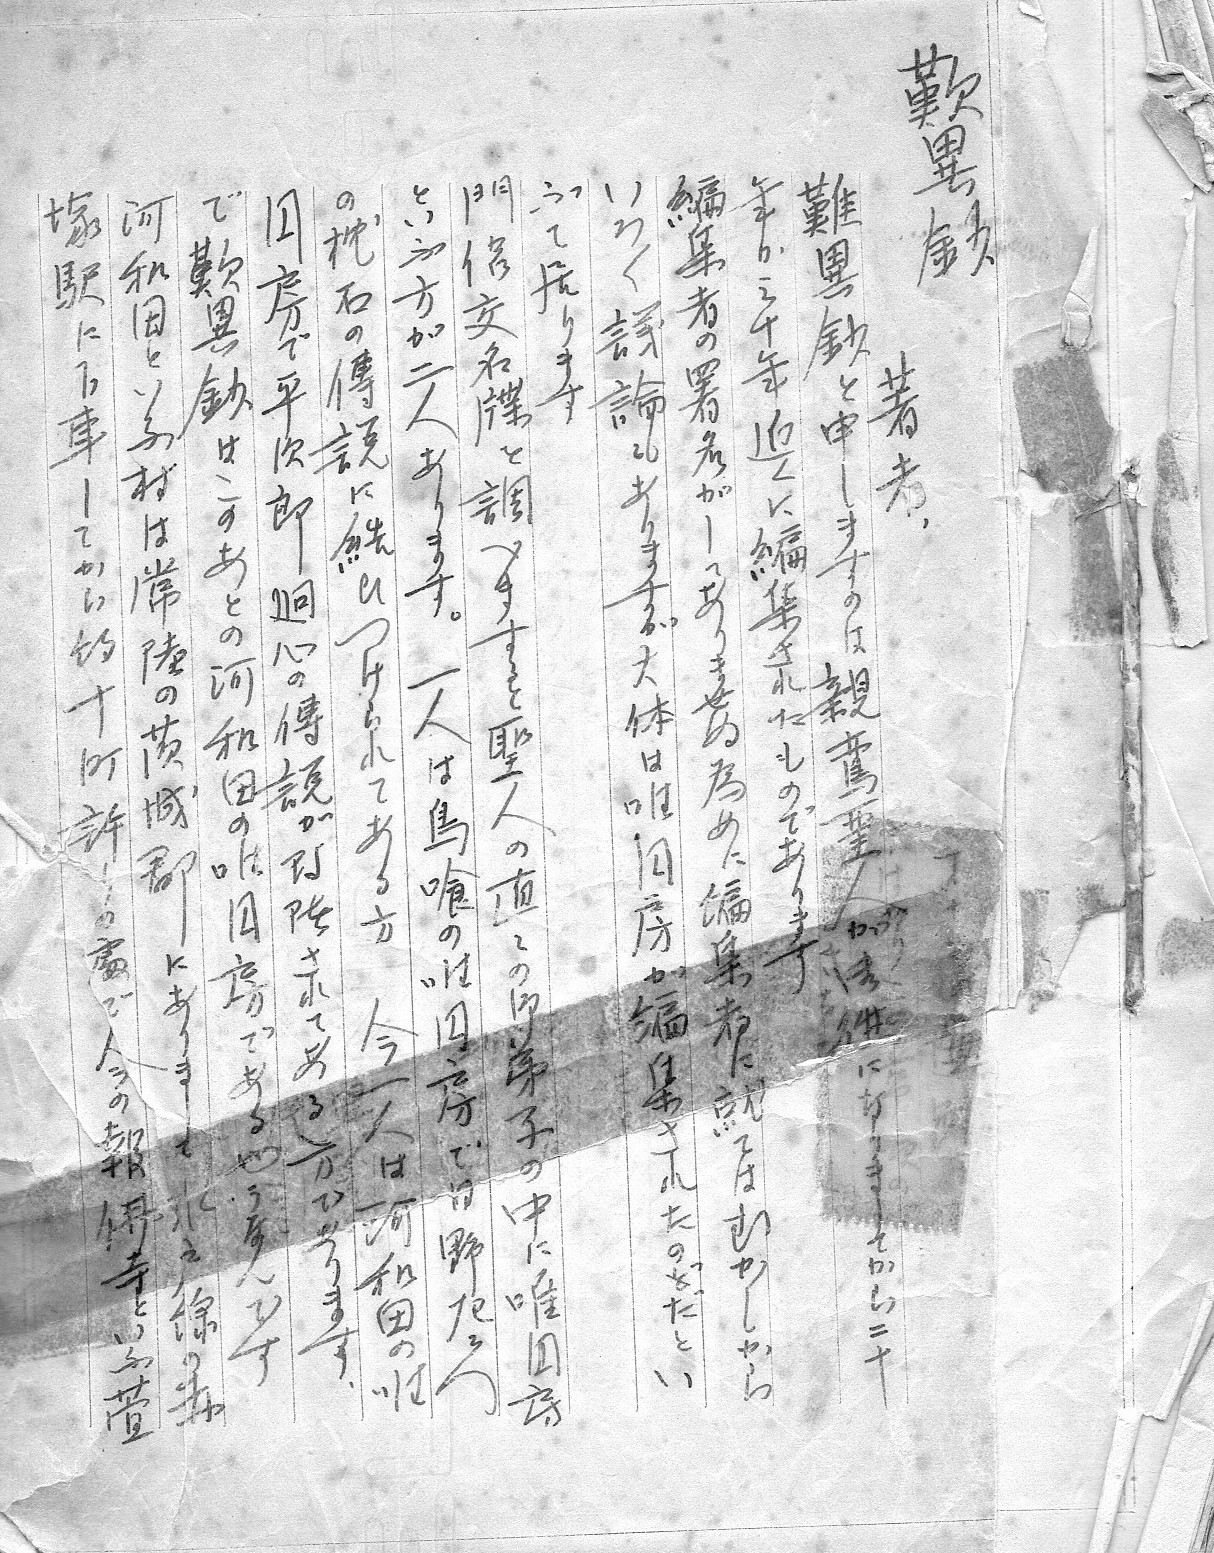 歎異鈔
著者、
難異鈔と申しますのは親鸞聖人が になりましてから二十
年か三十年近くに編集されたものであります
編集者の署名がしてありませぬ為めに編集者に就てはむかしから
いろ〱議論もありますが大体は唯円房が編集されたのだとい
ふて居ります
門侶交名牒を調べますると聖人の直々の御弟子の中に唯円房
といふ方が二人あります。一人は鳥喰の唯円房で日野左衛門
の枕石の傳説に結ひつけられてある方 今一人は河和田の唯
円房で平次郎廻心の傳説が附随されてある方であります、
で歎異鈔はこのあとの河和田の唯円房であるやうなんです
河和田といふ村は常陸の茨城郡にありまして 線の赤
塚駅に下車してから約十町許りの處で 今の報佛寺といふ萱